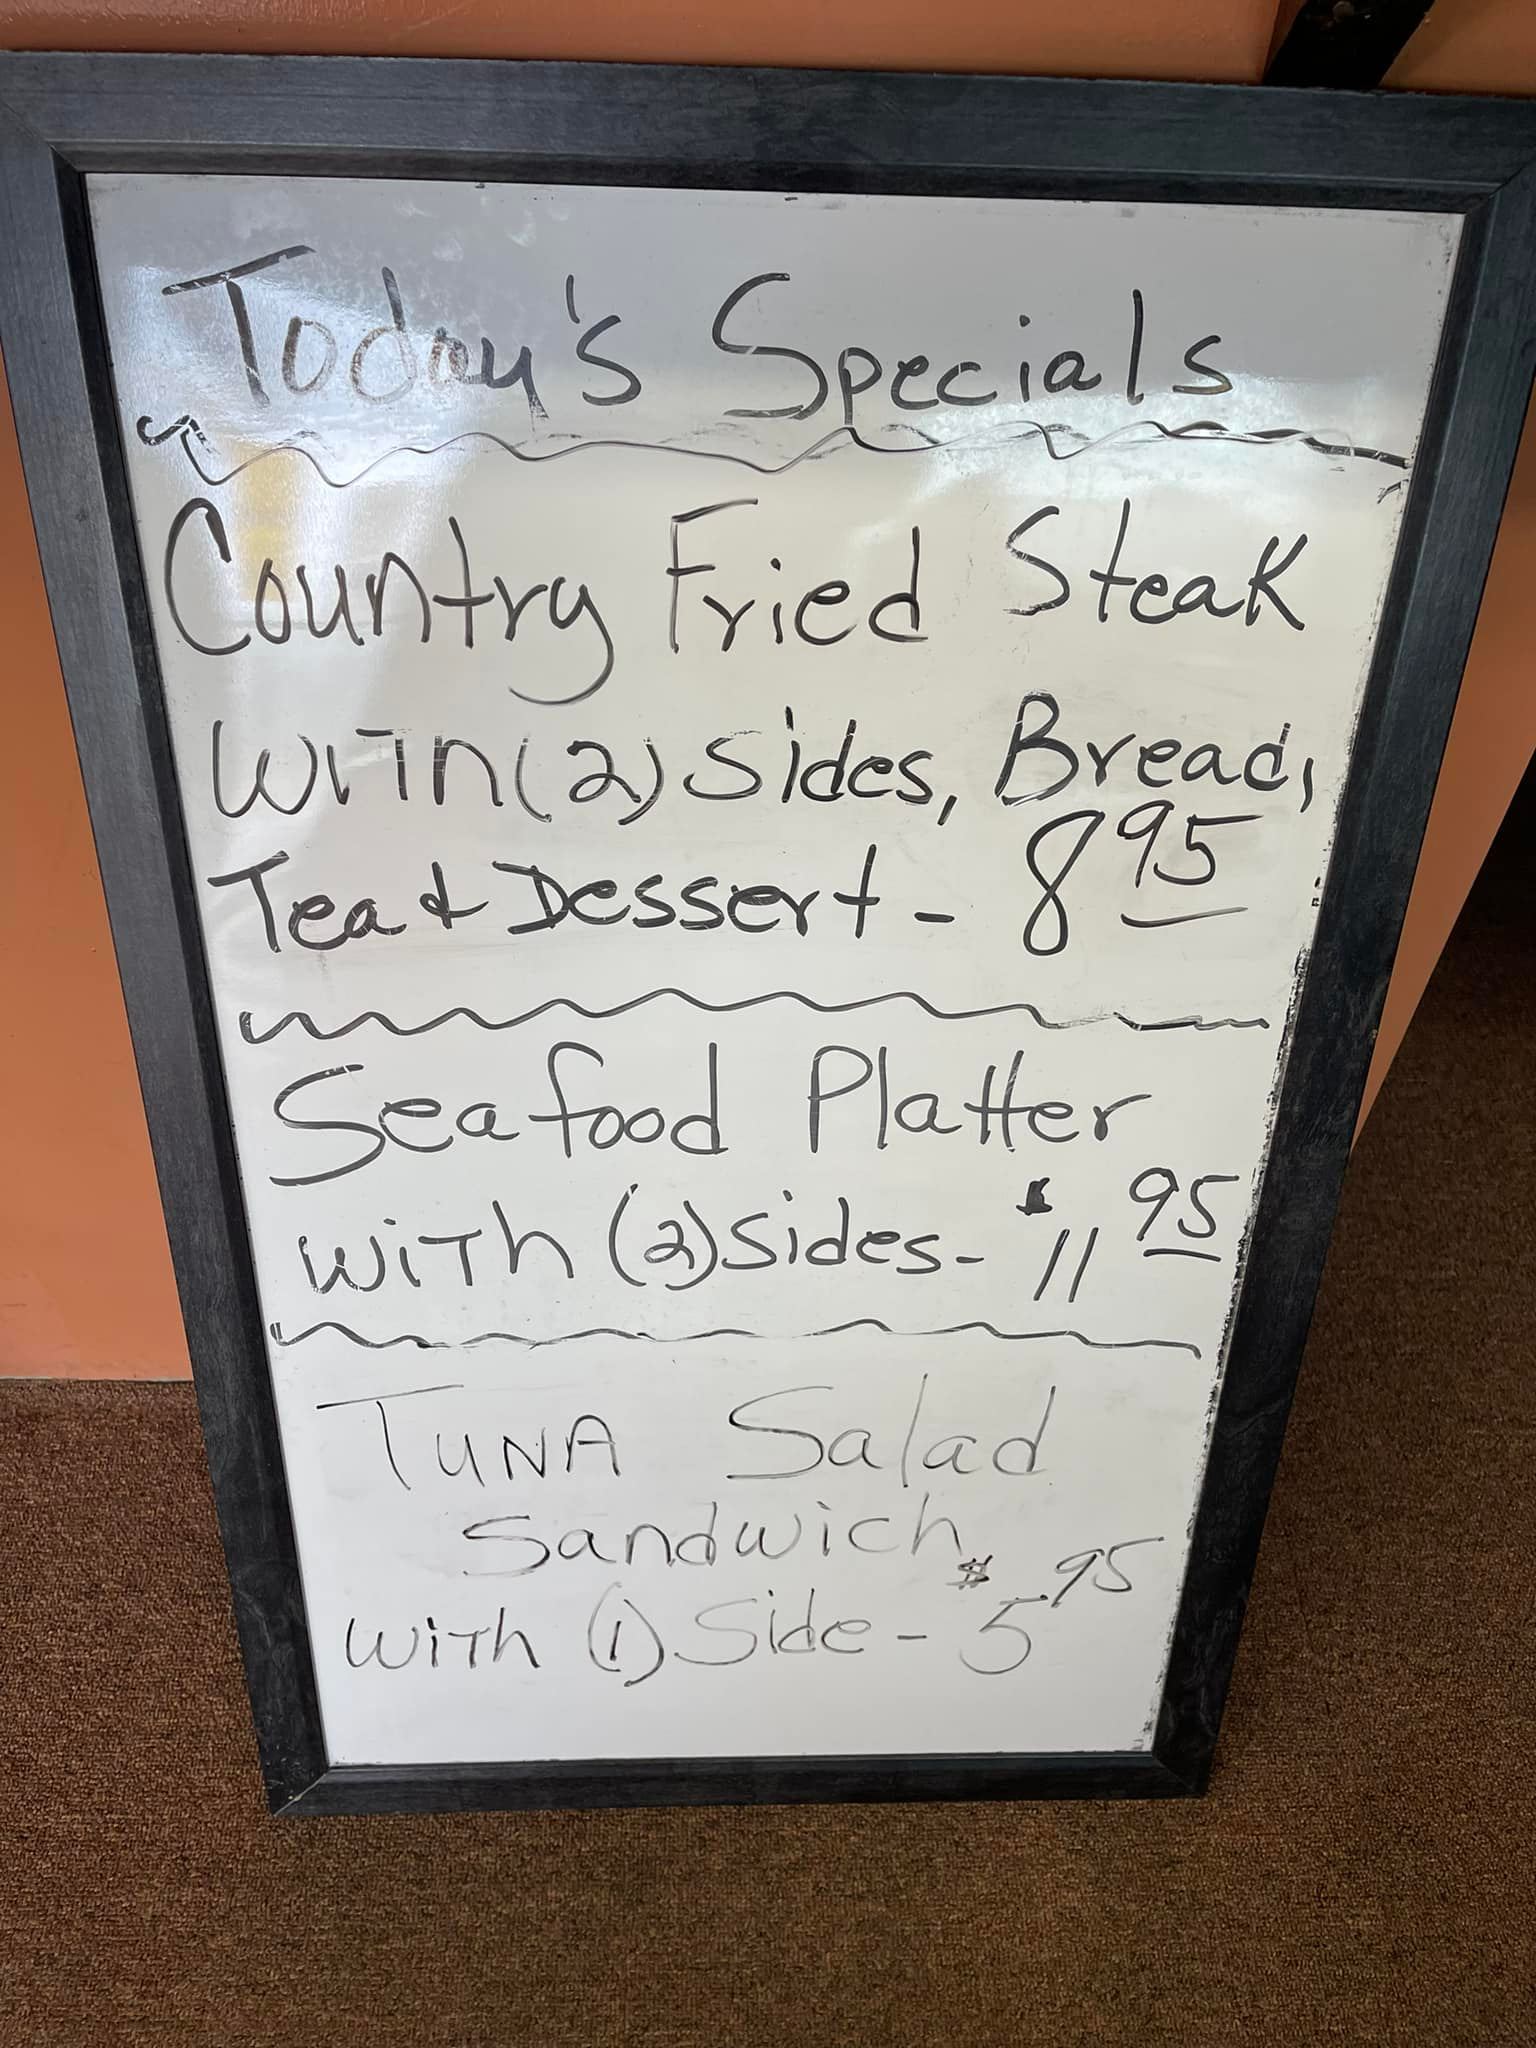 Today's Specials
Country Fried Steak
with (2) sides, Bread,
Tea & Dessert - 8 95
Seafood Platter
with (2) sides - $11 95
TUNA Salad
Sandwich
with (1) Side - $5.95